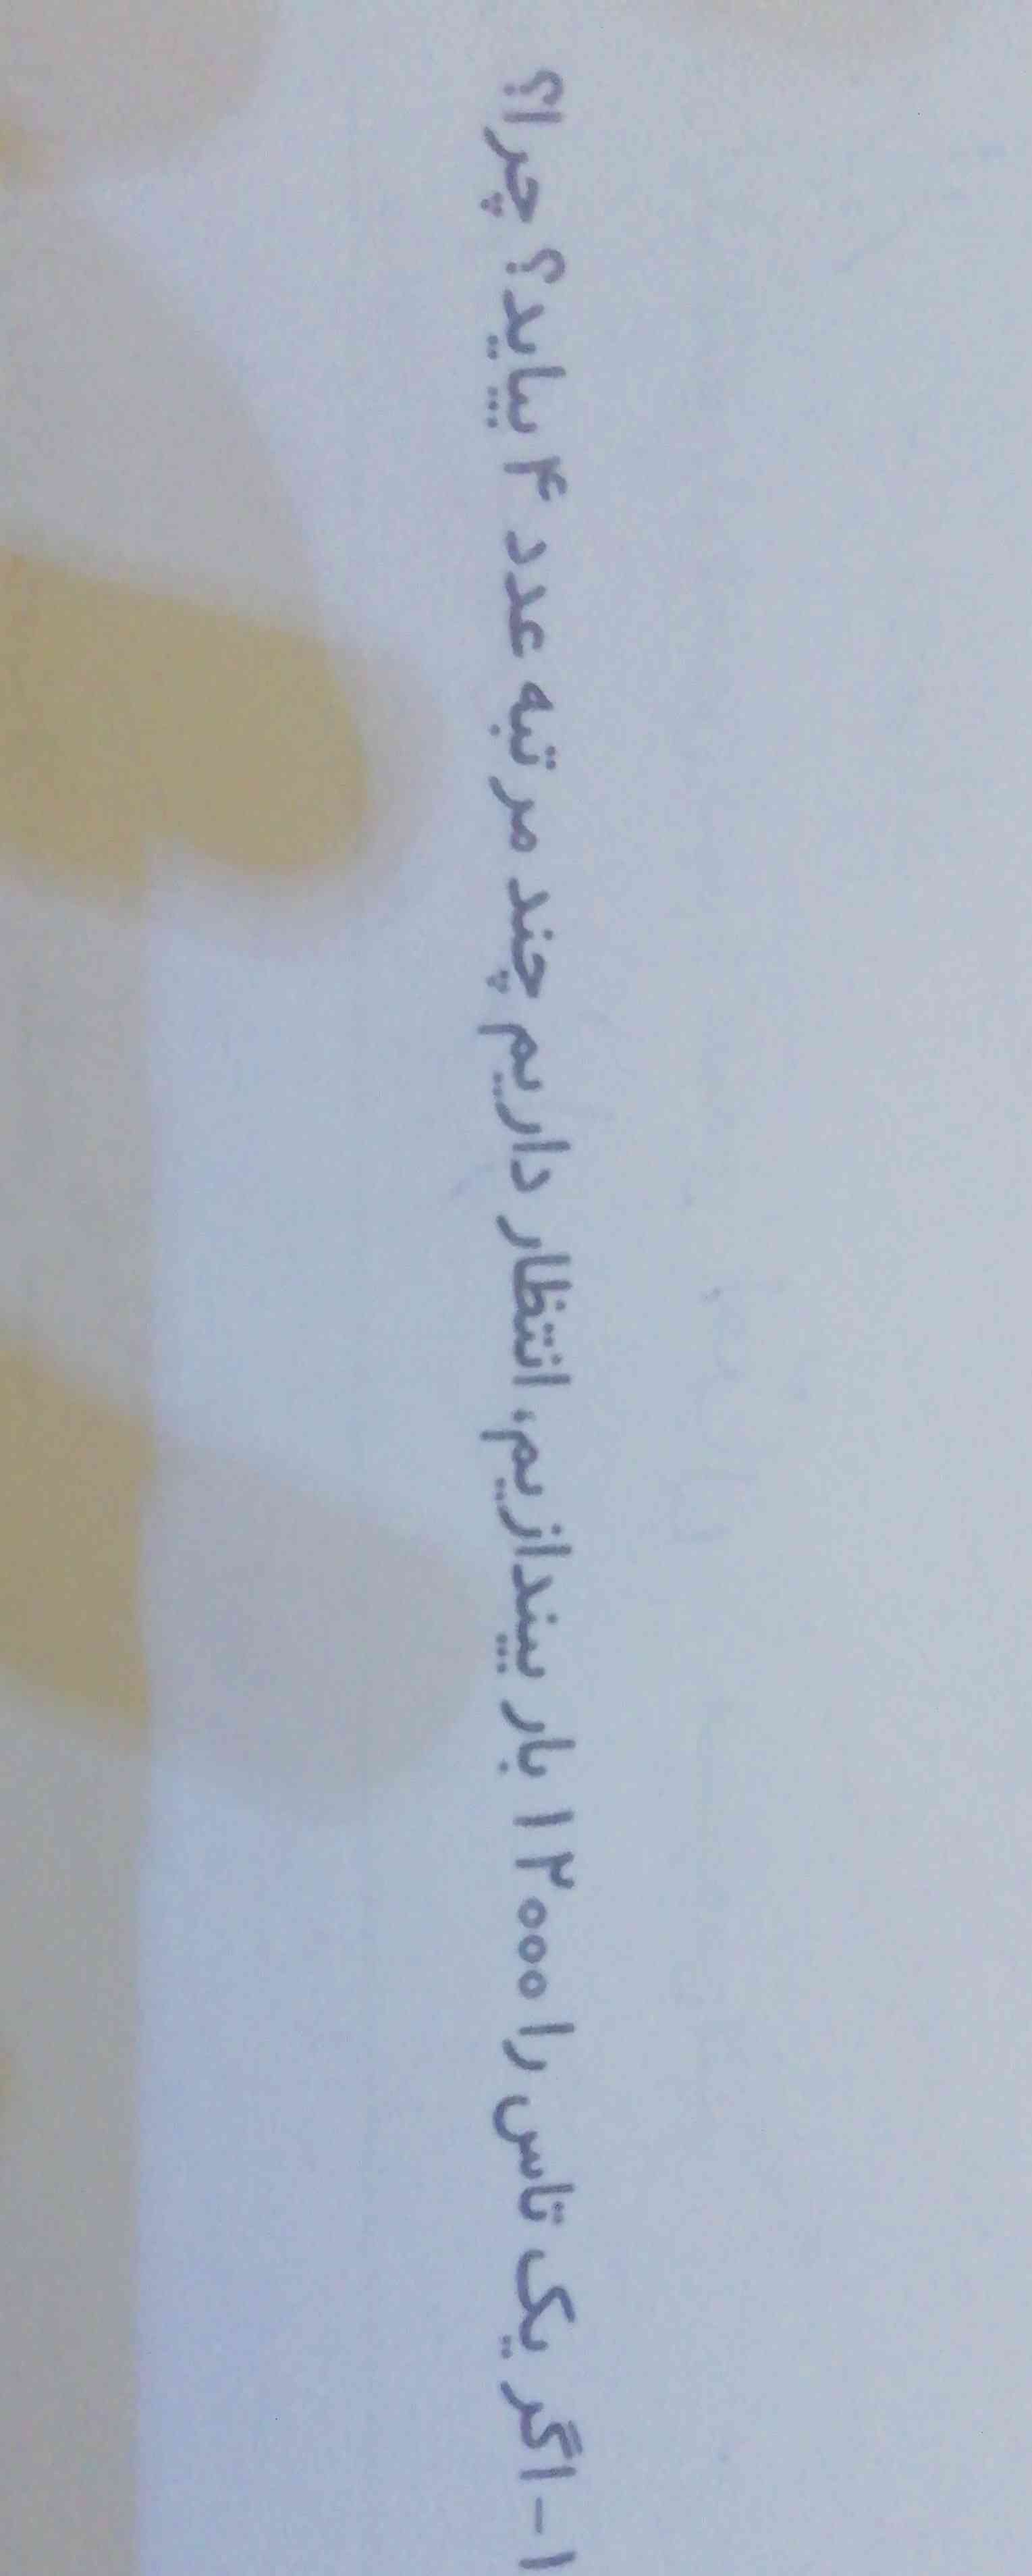 ۱- اگر یک تاس را ۱۲۰۰۰ بار بیندازیم، انتظار داریم چند مرتبه عدد ۴ بیاید؟ چرا؟